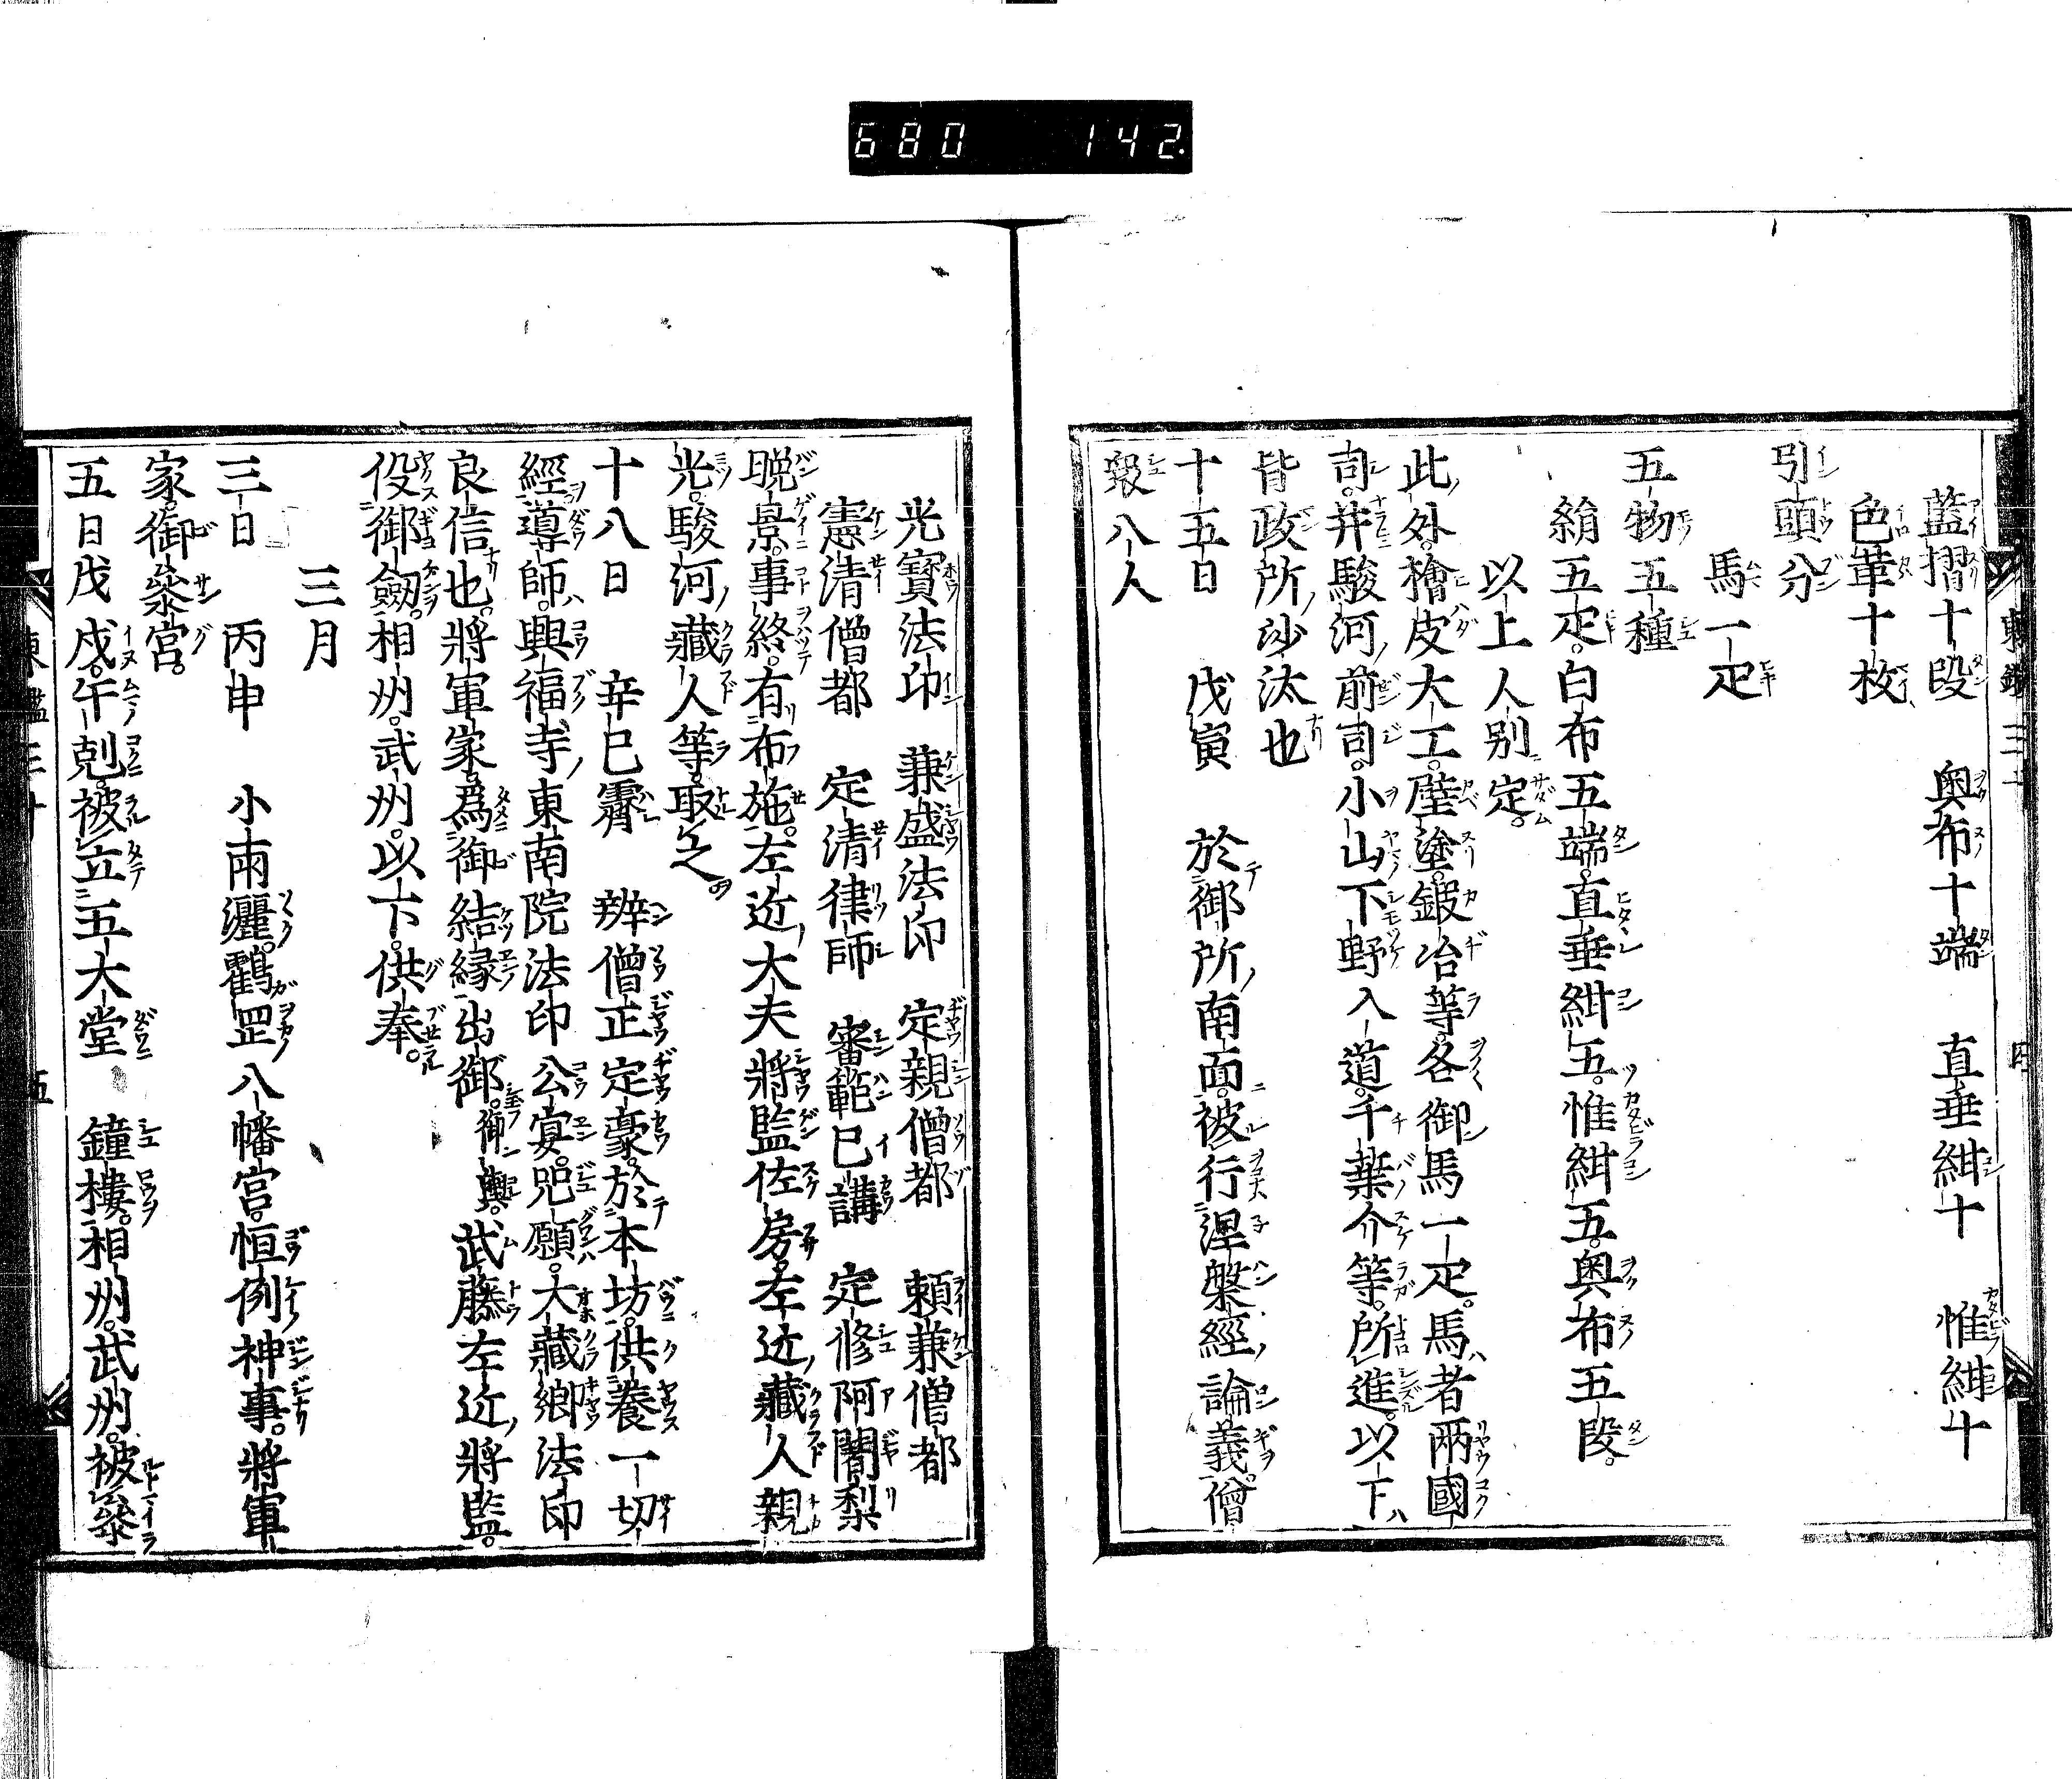 680 142
藍摺十段 奥布十端 直垂紺十 帷紺十
色革十枚
引頭分
馬一疋
五物五種
絹五疋。白布五端。直垂紺五。帷紺五。奥布五段。
以上人別定。
此外。檜皮大工。壁塗。鍛冶等。各御馬一疋。馬者兩國
司。并駿河前司。小山下野入道。千葉介等。所進。以下
皆政所沙汰也
十五日 戊寅 於御所南面。被行涅槃經論義。僧
衆八人
光寶法印 兼盛法印 定親僧都 頼兼僧都
憲清僧都 定清律師 審範已講 定修阿闍梨
晩景。事終。有布施。左近大夫將監佐房。左近藏人親
光。駿河藏人等。取之。
十八日 辛巳霽 辨僧正定豪。於本坊。供養一切
經。導師。興福寺東南院法印公宴。咒願。大藏卿法印
良信也。將軍家。爲御結縁出御。御輿。武藤左近將監。
役御劔。相州。武州。以下。供奉。
三月
三日 丙申 小雨灑。鶴岡八幡宮。恒例神事。將軍
家。御參宮。
五日戊戌。午尅。被立五大堂 鐘樓。相州。武州。被參